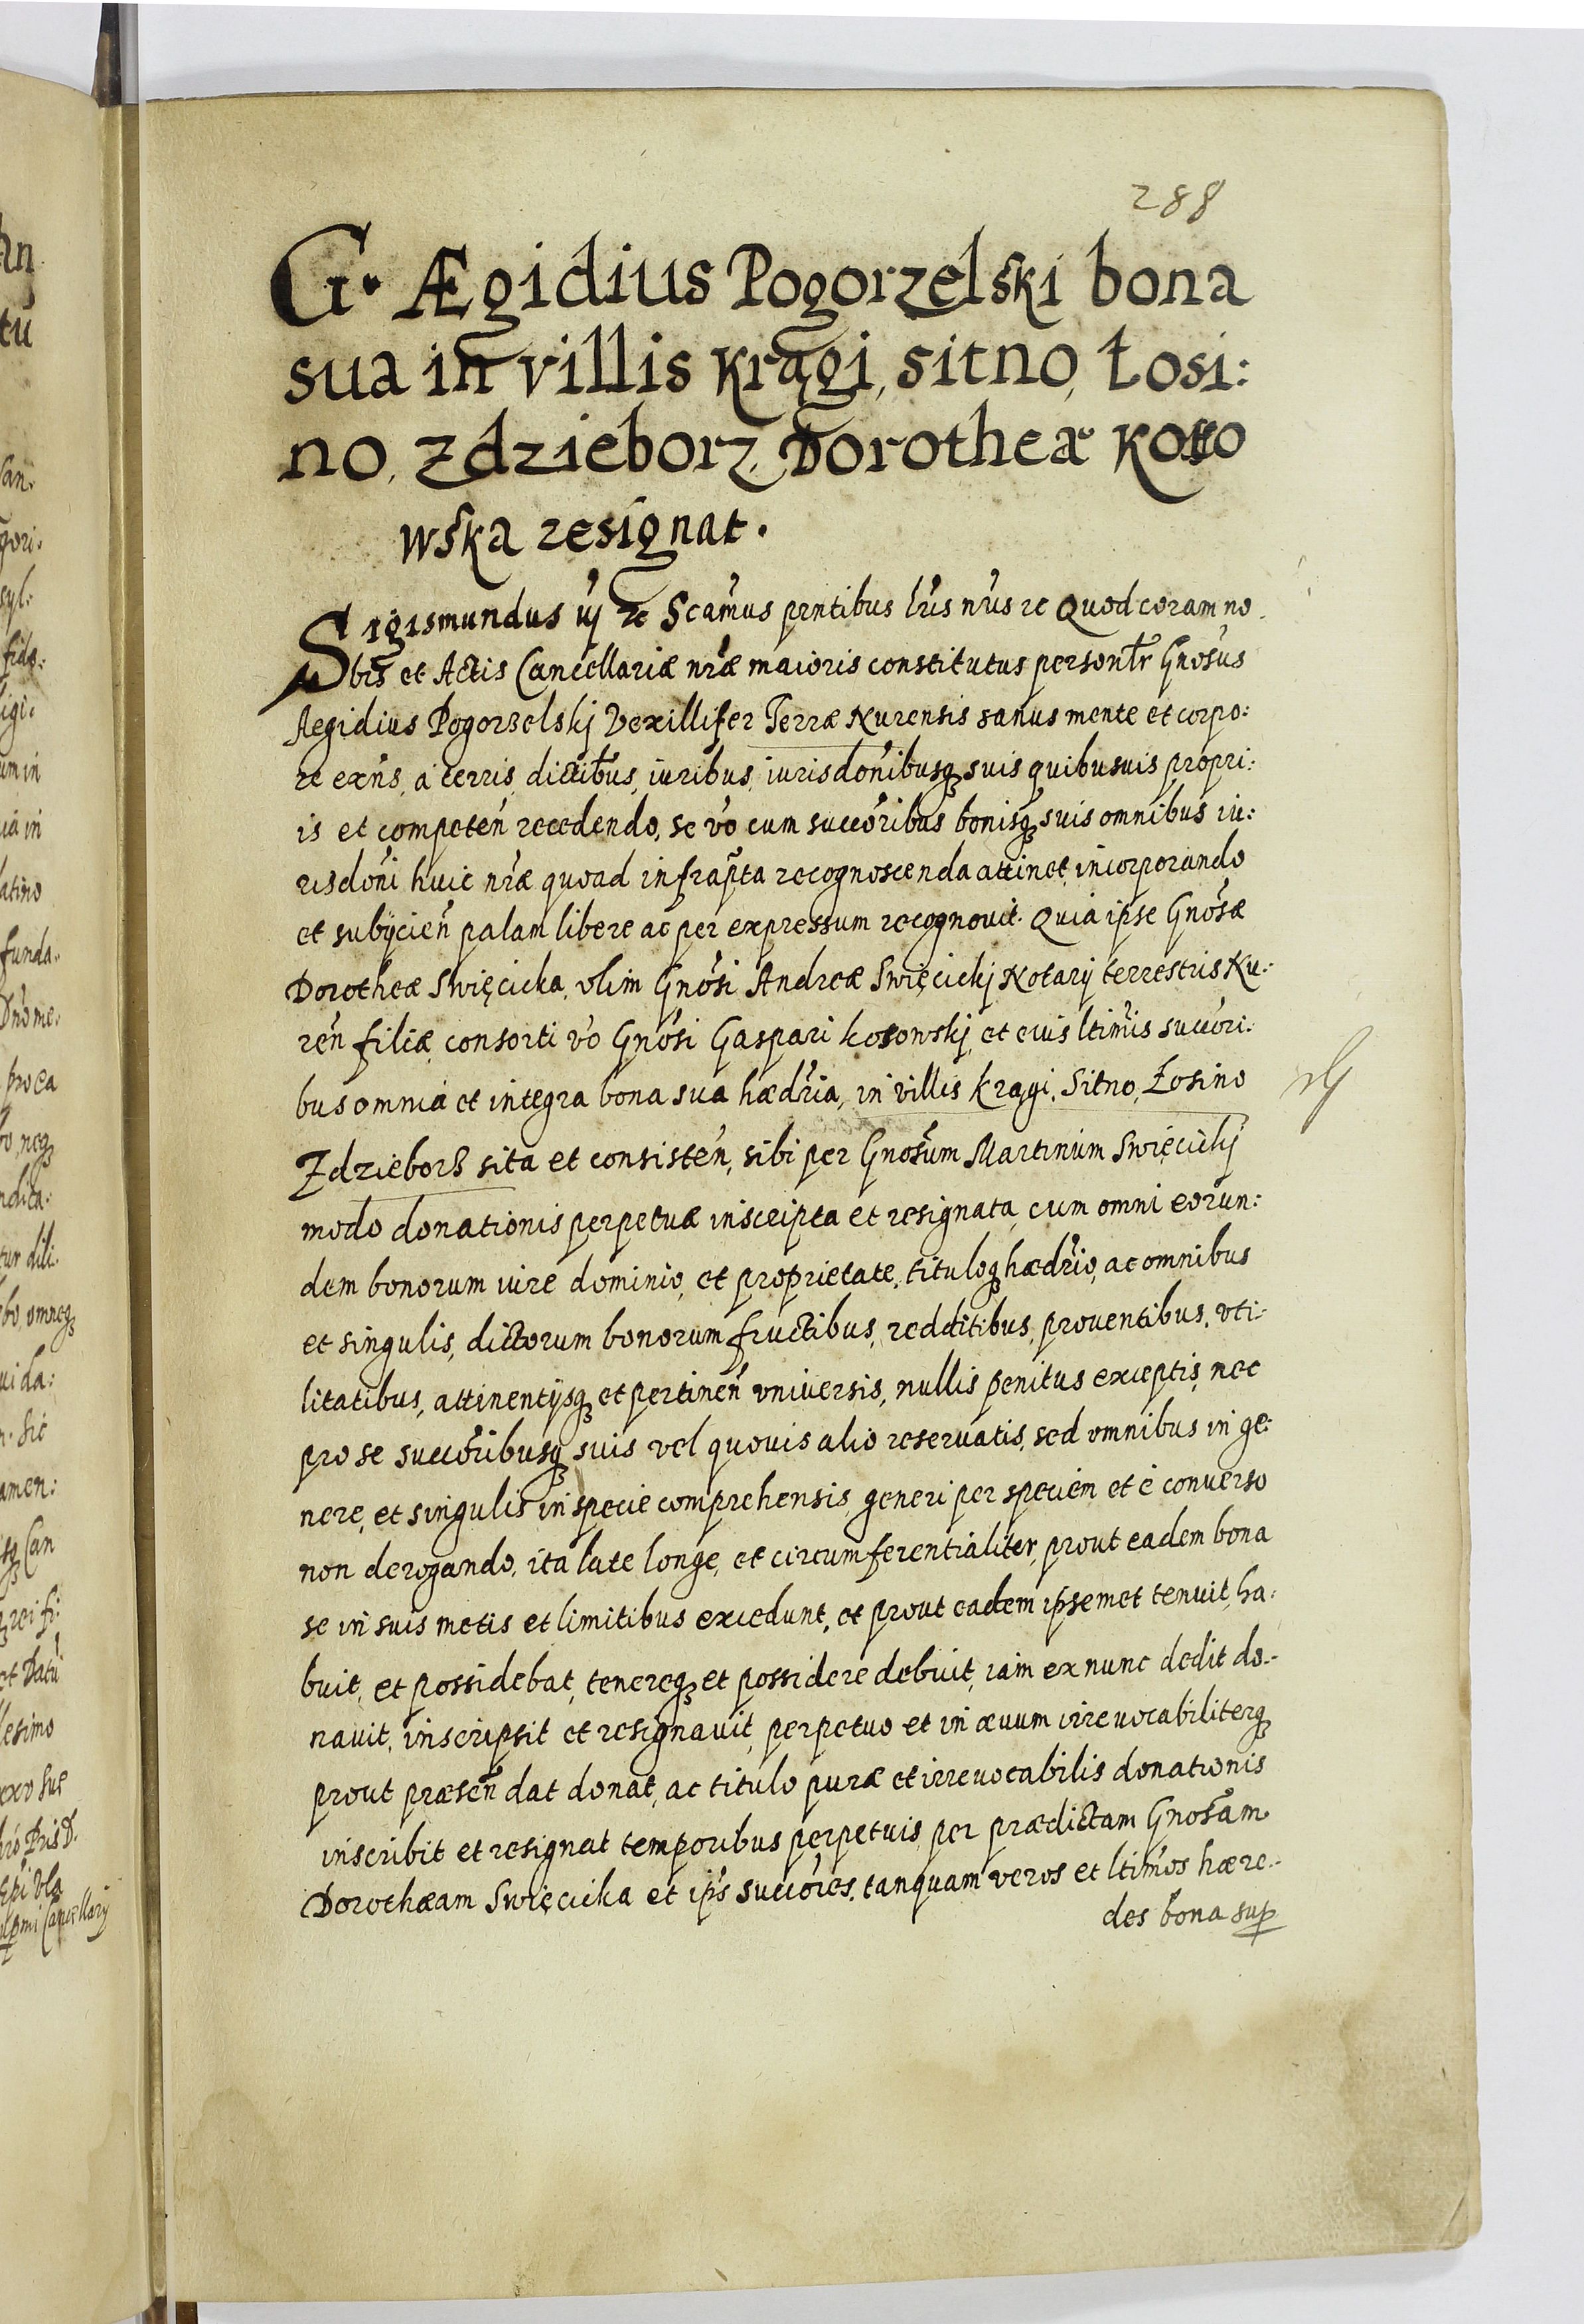 288
G. Ægidius Pogorzelski bona
sua in villis Krągi, sitno, Łosi:
no, Zdzieborz, Dorotheæ Kosso
wska resignat.
Sigismundus iij rc Scam̃us pñtibus lr̃is nr̃is rc Quod coram no
bis et Actis Cancellariæ nr̃æ maioris constitutus personlr̃ Gnosus
Aegidius Pogorzelskj Vexillifer Terræ Nurensis sanus mente et corpo:
re exñs, a terris, dictib̃us, iuribus, iurisdoñibusq̃ suis quibusuis propri:
is et competeñ recedendo, se vo cum succoribus bonisq̃ suis omnibus iu:
risdoñi huic nr̃æ quoad infrapta recognoscenda attinet, incorporando
et subijcieñ palam libere ac per expressum recognovit. Quia ipse Gnosæ
Dorotheæ Swięcicka, olim Gnosi Andreæ Swięcickj Notarij terrestris Nu:
reñ filiæ, consorti vo Gnosi Gaspari Kosowskj, et eius ltimis succori:
bus omnia et integra bona sua hædria, in villis Krągi, Sitno, Łosino
Zdzieborz sita et consisteñ, sibi per Gnosum Martinum Swięcickj
modo donationis perpetuæ inscripta et resignata, cum omni eorun:
dem bonorum iure dominio, et proprietate, tituloq̃ hædrio, ac omnibus
et singulis, dictorum bonorum fructibus, redditibus, prouentibus, vti:
litatibus, attinentijsq̃ et pertineñ vniuersis, nullis penitus exceptis, nec
pro se succoribusq̃ suis vel quouis alio reseruatis, sed omnibus in ge:
nere, et singulis in specie comprehensis, generi per speciem et è conuerso
non derogando, ita late longe, et circumferentialiter, prout eadem bona
se in suis metis et limitibus excedunt, et prout eadem ipsemet tenuit, ha:
buit, et possidebat, tenereq̃ et possidere debuit, iam ex nunc dedit do:
nauit, inscripsit et resignauit, perpetuo et in æuum irreuocabiliterq̃
prout præseñ dat donat, ac titulo puræ et irreuocabilis donationis
inscribit et resignat temporibus perpetuis, per prædictam Gnosam
Dorothæam Swięcicka et ip̃s succores, tanquam veros et ltimos hære:
des bona sup